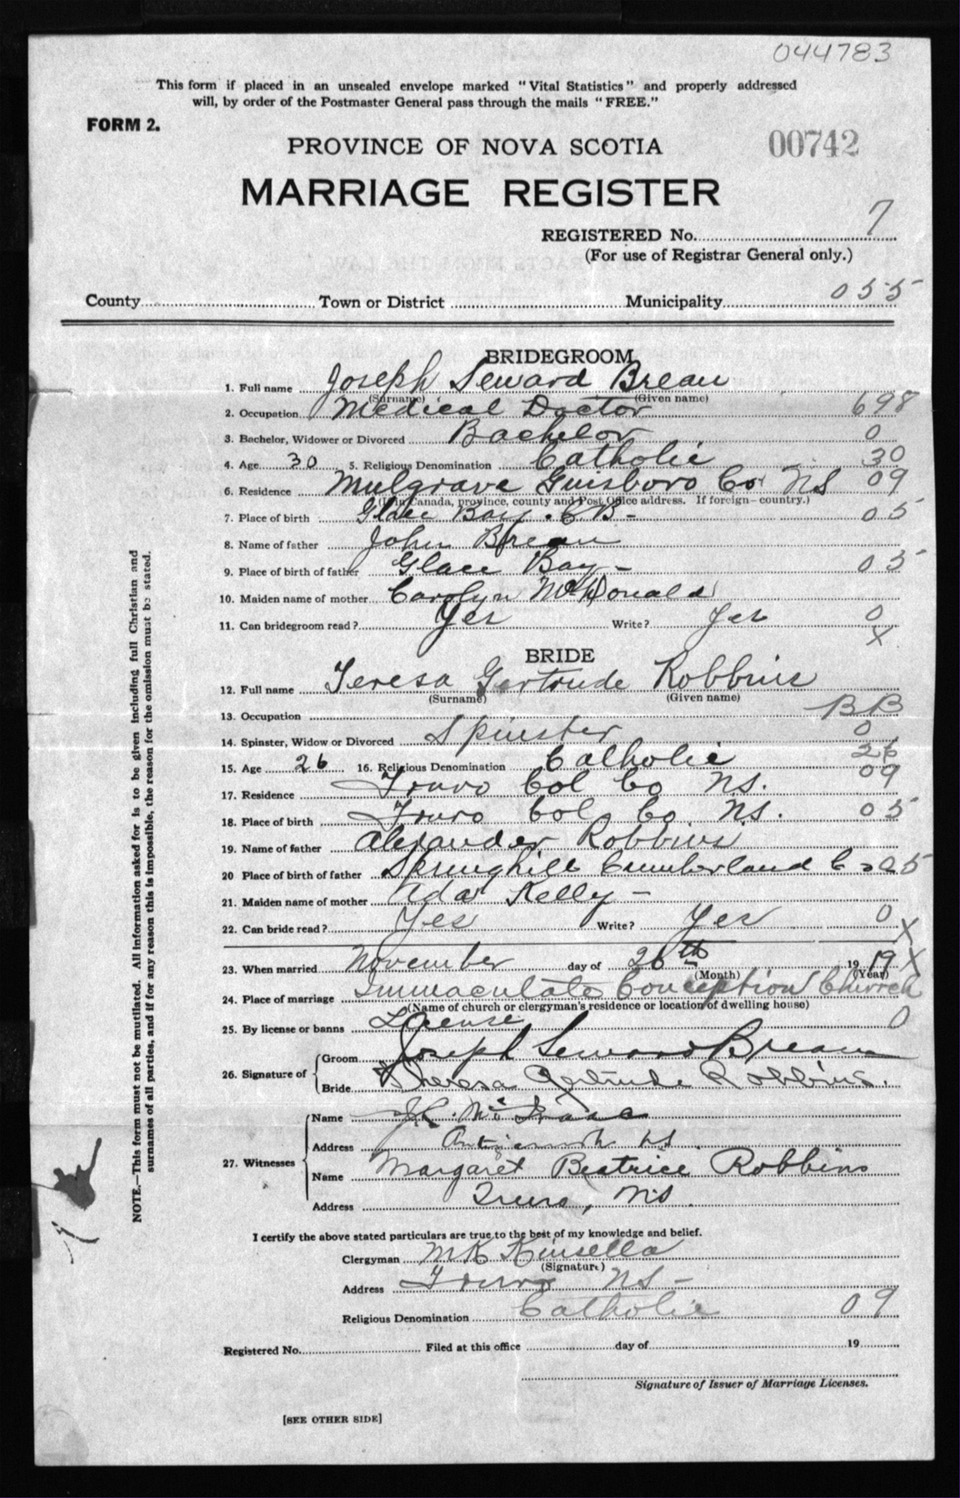 044783
This form if placed in an unsealed envelope marked "Vital Statistics" and properly addressed
will, by order of the Postmaster General pass through the mails "FREE."
FORM 2.
PROVINCE OF NOVA SCOTIA
00742
MARRIAGE REGISTER
REGISTERED No. 7
(For use of Registrar General only.)
County Town or District Municipality 055
BRIDEGROOM
1. Full name Joseph Seward Breau
(Surname) (Given name)
2. Occupation Medical Doctor 698
3. Bachelor, Widower or Divorced Bachelor 0
4. Age 30 5. Religious Denomination Catholic 30
6. Residence Mulgrave Guisboro Co NS 09
(If in Canada, province, county and Post Office address. If foreign- country.)
7. Place of birth Glace Bay. C.B- 05
8. Name of father John Breau
9. Place of birth of father Glace Bay - 05
10. Maiden name of mother Carolyn McDonald
11. Can bridegroom read? Yes Write? Yes 0
X
BRIDE
12. Full name Teresa Gertrude Robbins
(Surname) (Given name)
13. Occupation BB
14. Spinster, Widow or Divorced Spinster 0
15. Age 26 16. Religious Denomination Catholic 26
17. Residence Truro Col Co NS. 09
18. Place of birth Truro Col Co. NS. 05
19. Name of father Alexander Robbins
20 Place of birth of father Springhill Cumberland Co 05
21. Maiden name of mother Ada Kelly -
22. Can bride read? Yes Write? Yes 0 X
23. When married November day of 26th 1919 X
(Month) (Year)
24. Place of marriage Immaculate Conception Church
(Name of church or clergyman's residence or location of dwelling house)
25. By license or banns License 0
26. Signature of { Groom Joseph Seward Breau
Bride Theresa Gertrude Robbins.
27. Witnesses { Name
Address Antigonish NS
Name Margaret Beatrice Robbins
Address Truro, NS.
I certify the above stated particulars are true to the best of my knowledge and belief.
Clergyman Kinsella
(Signature)
Address Truro NS -
Religious Denomination Catholic 09
Registered No. Filed at this office day of 19
Signature of Issuer of Marriage Licenses.
[SEE OTHER SIDE]
NOTE.—This form must not be mutilated. All information asked for is to be given including full Christian and
surnames of all parties, and if for any reason this is impossible, the reason for the omission must be stated.